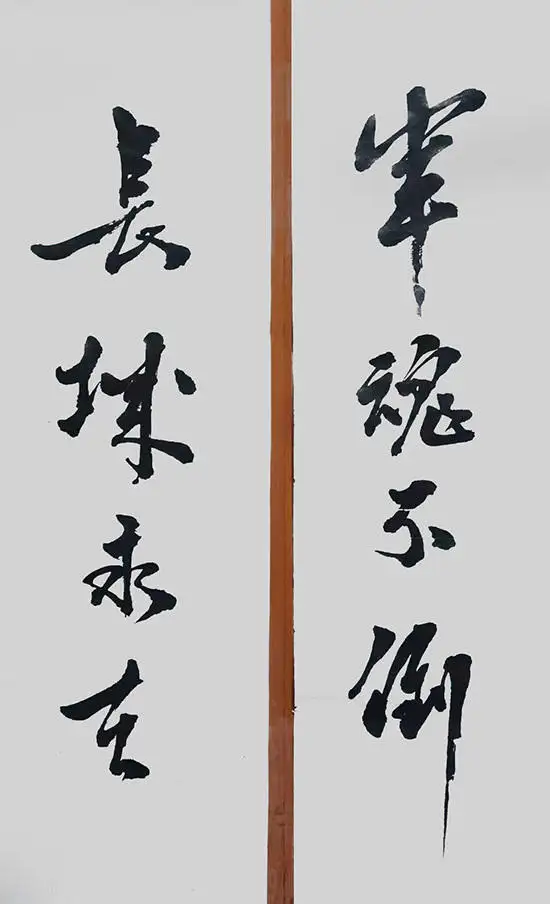 軍魂不倒
長城永在